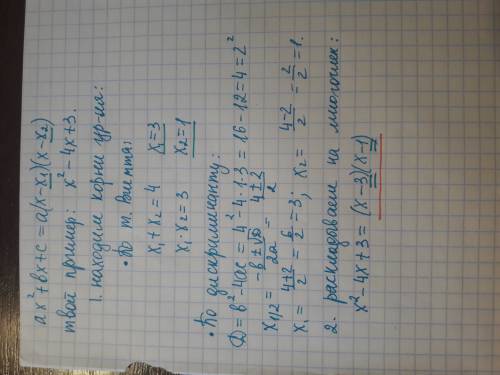 ax² + bx + c = a(x-x₁)(x-x₂)
твой пример: x² - 4x + 3.
1. находим корни ур-ия:
• По т. Виета:
x₁ + x₂ = 4 x₁=3
x₁ · x₂ = 3 x₂=1
• По дискриминанту:
D = b² - 4ac = 4² - 4·1·3 = 16 - 12 = 4 = 2²
x₁/₂ = (-b ± √D)/2a = (4 ± 2)/2
x₁ = (4+2)/2 = 6/2 = 3; x₂ = (4-2)/2 = 2/2 = 1.
2. раскладываем на многочлен:
x² - 4x + 3 = (x-3)(x-1)